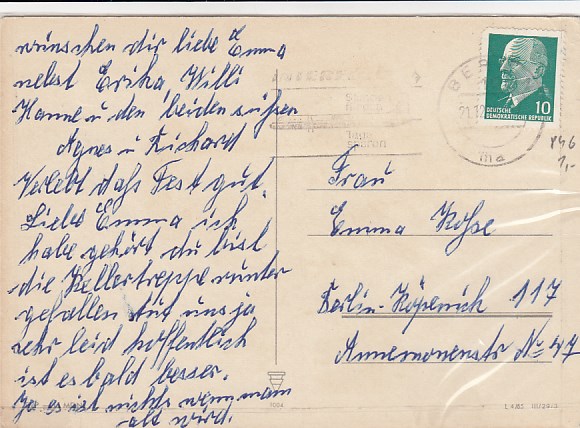 wünschen dir liebe Emma
nebst Erika Willi
Hanne u den beiden süssen
Agnes u Richard
Verlebt daſs Fest gut.
Liebe Emma ich
habe gehört, du bist
die Kellertreppe runter
gefallen tut uns ja
sehr leid hoffentlich
ist es bald besser.
Ja es ist nichts wenn mann
alt wird.
BER
21.12
10
DEUTSCHE
DEMOKRATISCHE REPUBLIK
sparen
Frau
Emma Kohse
Berlin-Köpenick 117
Annemonenstr No 47
1004